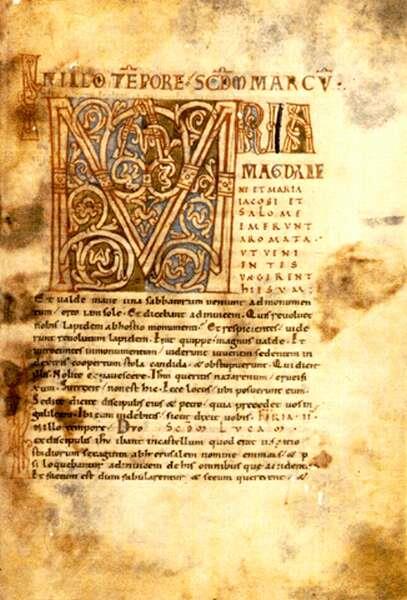 IN ILLO TEMPORE. SCDM MARCV.
MARIA
MAGDALE
NE ET MARIA
IACOBI ET
SALOME
EMERUNT
AROMATA.
UT VENI
ENTES
UNGERENT
IHESUM.
Et valde mane una sabbatorum veniunt ad monumen
tum, orto iam sole. Et dicebant ad invicem. Quis revolvet
nobis lapidem ab hostio monumenti? Et respicientes, vide
runt revolutum lapidem. Erat quippe magnus valde. Et
introeuntes in monumentum, viderunt iuvenem sedentem in
dextris coopertum stola candida, & obstupuerunt. Qui dicit
illis. Nolite expavescere. Ihm queritis nazarenum, crucifi
xum. Surrexit, non est hic. Ecce locus, ubi posuerunt eum.
Sed ite dicite discipulis eius & petro, quia precedet vos in
galileam. Ibi eum videbitis, sicut dixit vobis. FERIA II
In illo tempore. Duo SCDM LUCAM.
ex discipulis ihu ibant in castellum quod erat in spatio
stadiorum sexaginta ab ierusalem nomine emmaus, & ip
si loquebantur ad invicem de his omnibus que acciderant.
Et factum est dum fabularentur & secum quererent, &